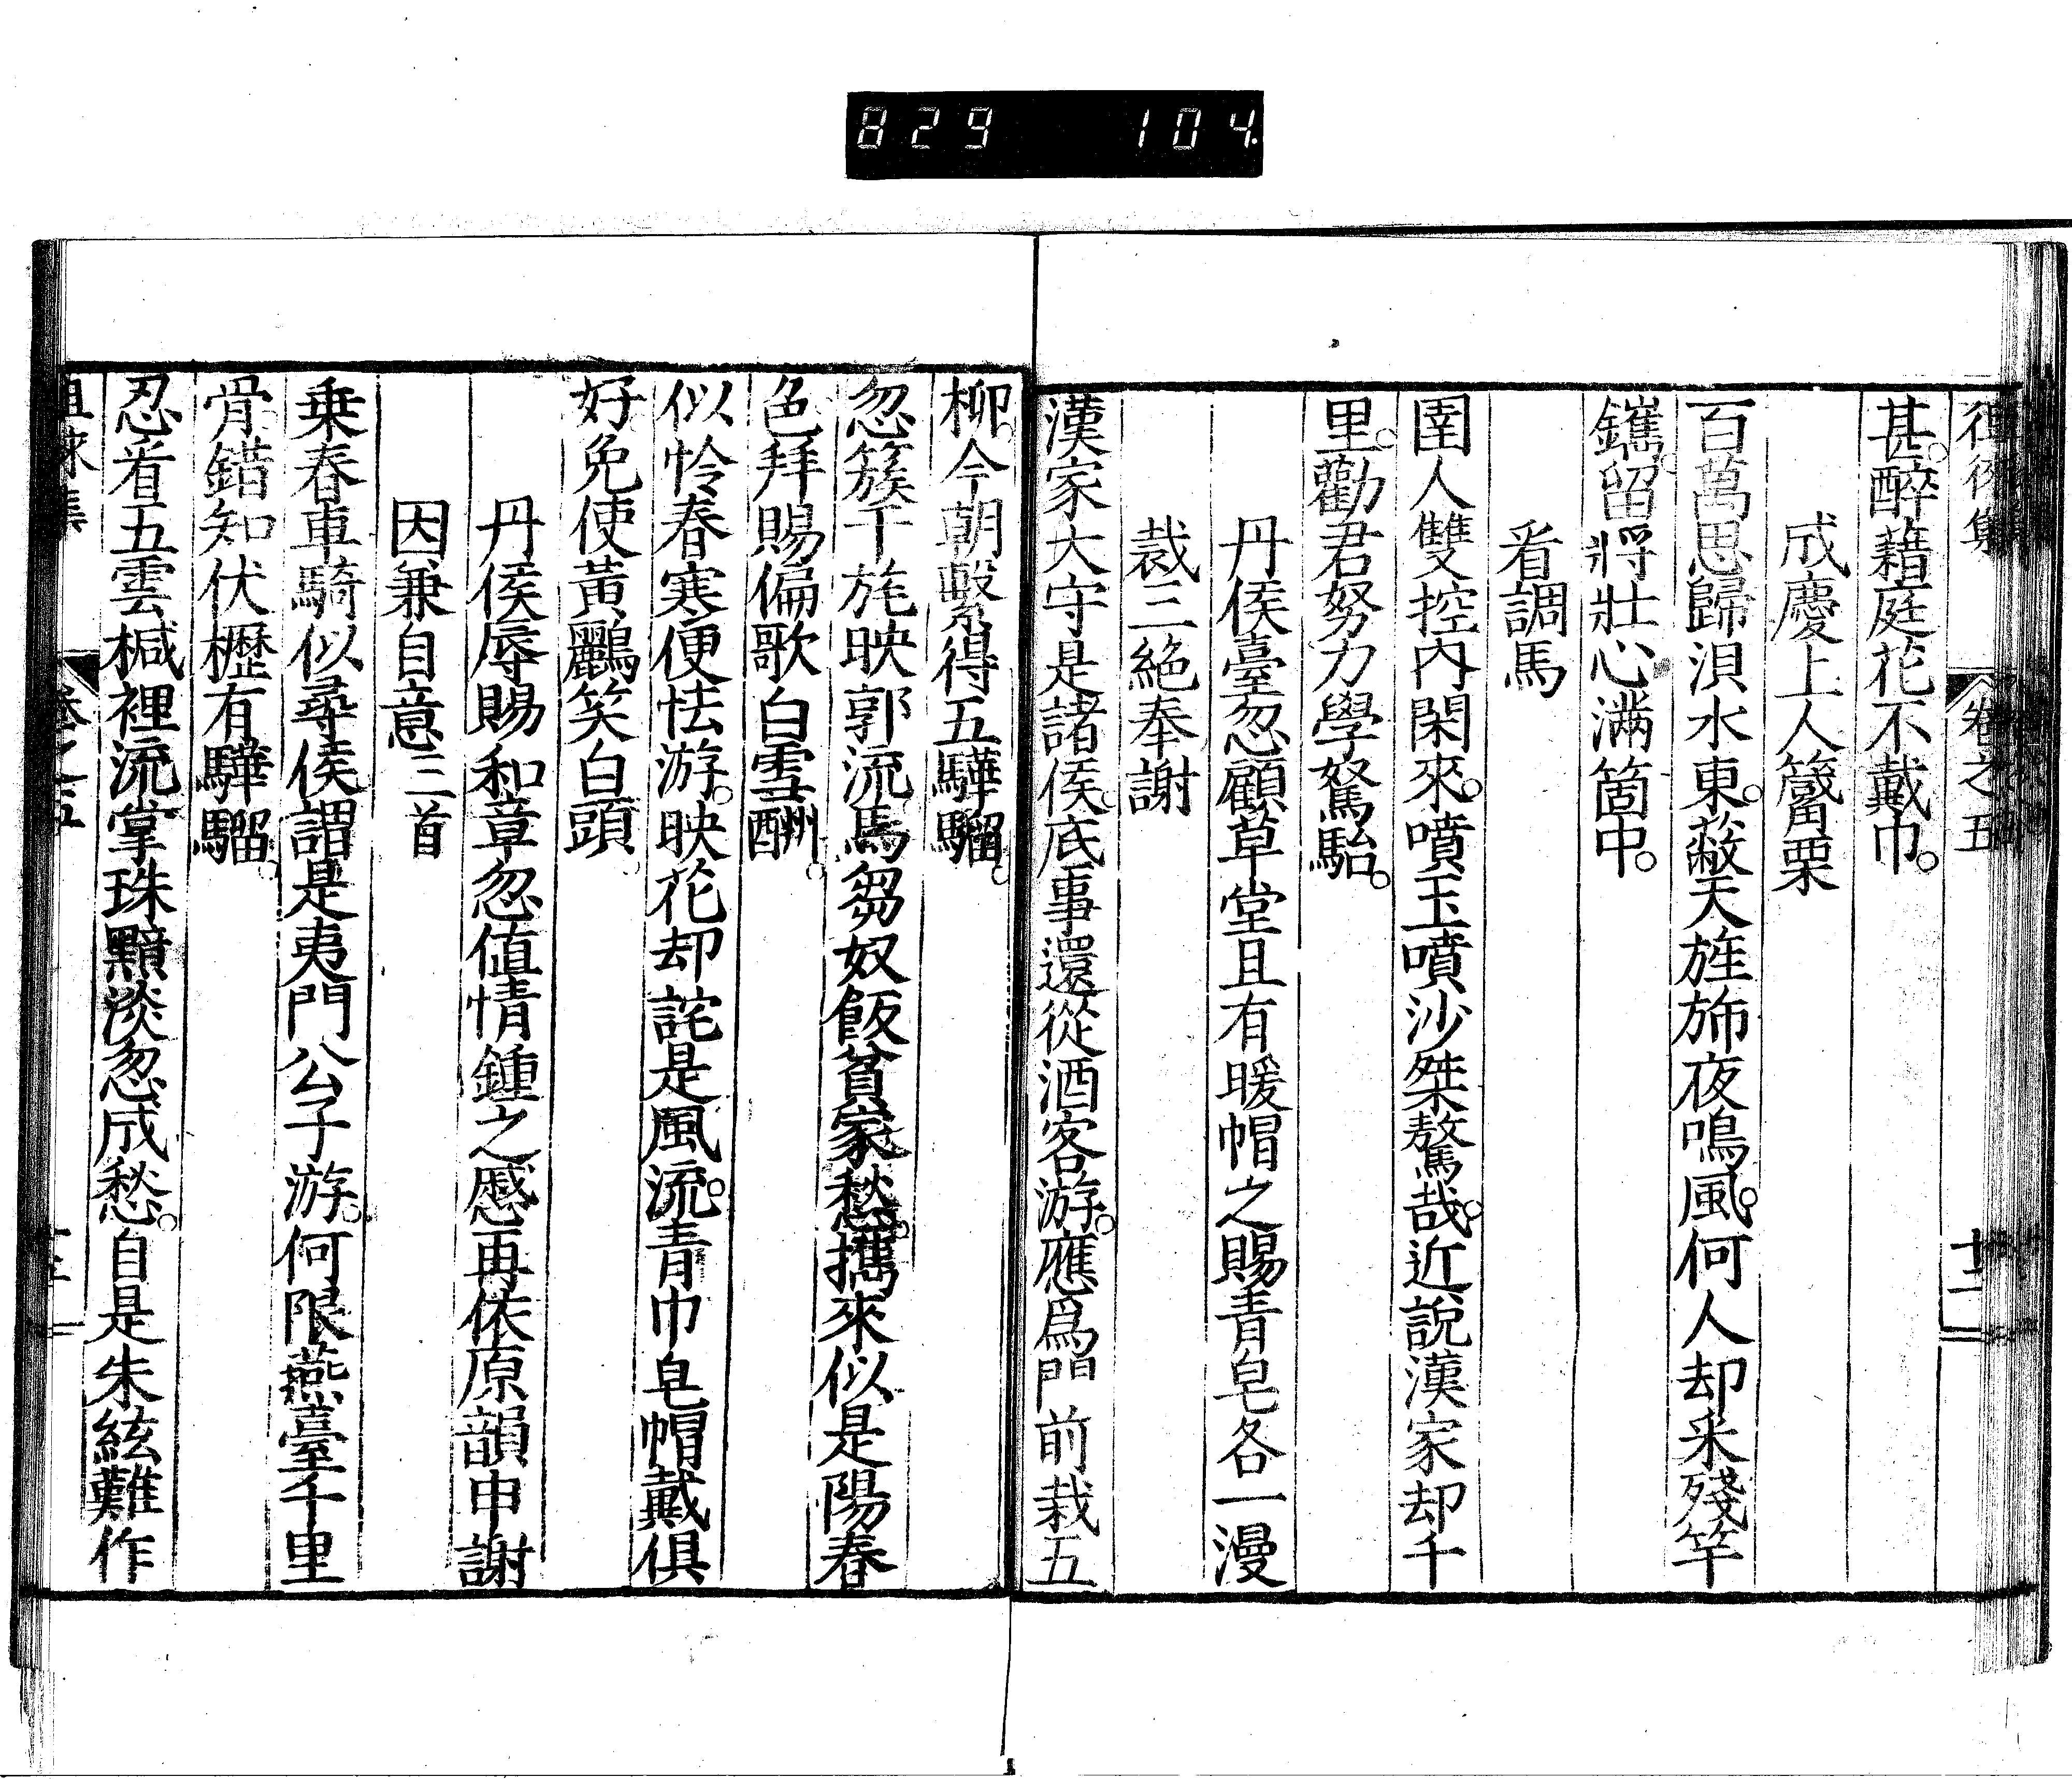 829 104
徂徠集 卷之五 十二
甚。醉藉庭花不戴巾。
成慶上人篳栗
百萬思歸浿水東。蔽天旌斾夜鳴風。何人却采殘竿
鑴。留將壯心滿箇中。
看調馬
圉人雙控內閑來。噴玉噴沙桀驁哉。近說漢家却千
里。勸君努力學駑駘。
丹侯臺忽顧草堂且有暖帽之賜青皂各一漫
裁三絶奉謝
漢家大守是諸侯。底事還從酒客游。應爲門前栽五
柳。今朝繫得五驊騮。
忽簇千旄映郭流。馬芻奴飯貧家愁。攜來似是陽春
色。拜賜偏歌白雪酬。
似怜春寒便怯游。映花却詫是風流。青巾皂帽戴俱
好。免使黃鸝笑白頭。
丹侯辱賜和章忽値情鍾之慼再依原韻申謝
因兼自意三首
乗春車騎似尋侯。謂是夷門公子游。何限燕臺千里
骨。錯知伏櫪有驊騮。
忍看五雲椷裡流。掌珠黯淡忽成愁。自是朱絃難作
徂徠集 卷之五